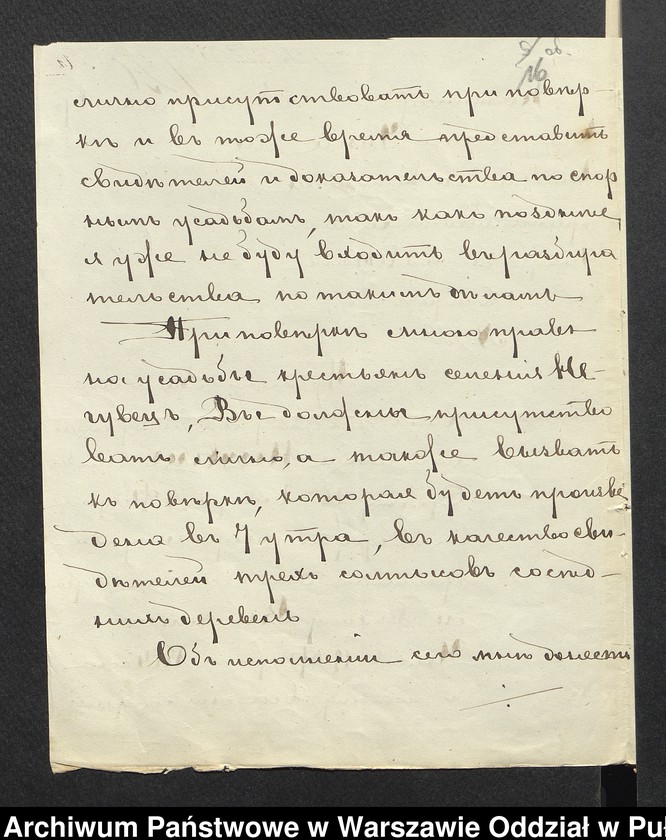 5/об.
16
лично присутствовать при повѣр-
кѣ и въ тоже время представить
свидѣтелей и доказательства по спор
нымъ усадьбамъ, такъ какъ позднѣе
я уже не буду входить въ разбира
тельства по такимъ дѣламъ
При повѣркѣ мною правъ
на усадьбы крестьянъ селенія Не-
гувецъ, Вы должны присутство
вать лично, а также вызвать
къ повѣркѣ, которая будетъ произве
дена въ 7 утра, въ качествѣ сви-
дѣтелей трехъ солтысовъ сосѣд-
нихъ деревень
Объ исполненіи сего мнѣ донести
Archiwum Państwowe w Warszawie Oddział w Pu